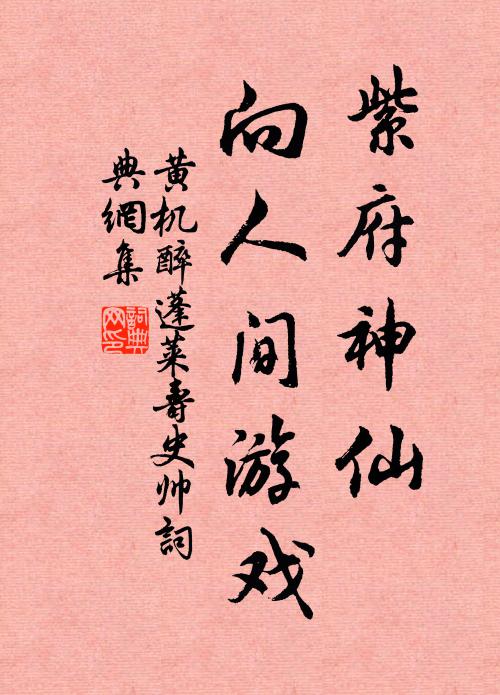 紫府神仙
向人间游戏
黄机醉蓬莱寿史帅詞
典網集
詞典
网印